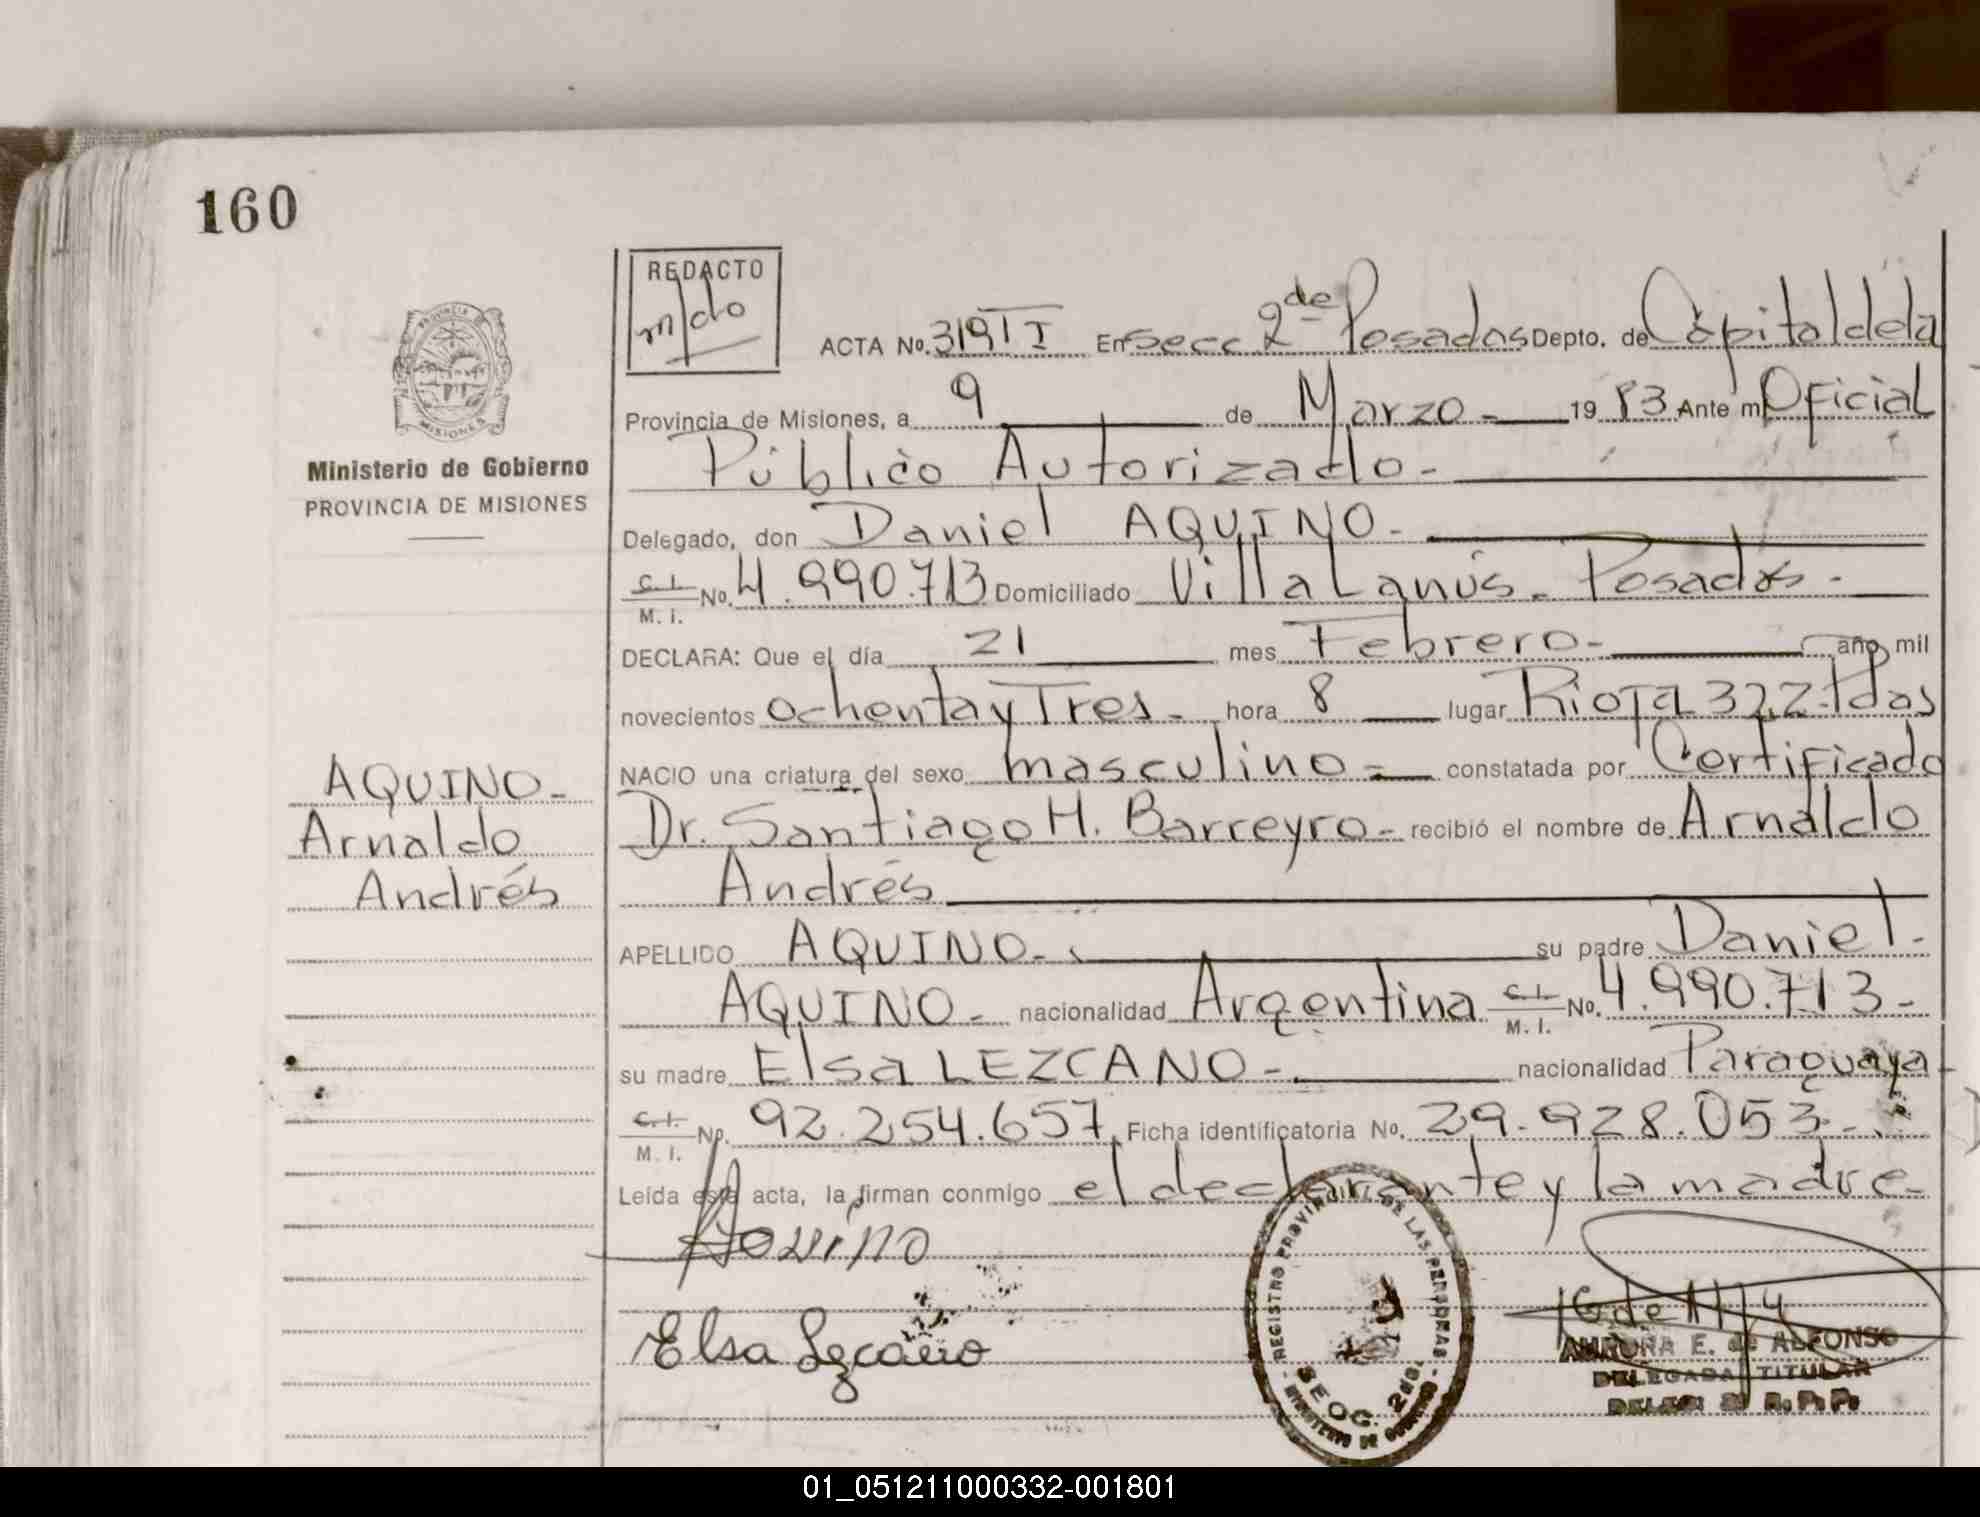 160
REDACTO
m/do
ACTA No. 319 T I En Secc 2da de Posadas Depto. de Capital de la
Provincia de Misiones, a 9 de Marzo - 1983 Ante mi Oficial
Público Autorizado -
PROVINCIA DE MISIONES
Ministerio de Gobierno
PROVINCIA DE MISIONES
Delegado, don Daniel AQUINO -
C. I. / M. I. No. 4.990.713 Domiciliado Villa Lanús - Posadas -
DECLARA: Que el día 21 mes Febrero - año mil
novecientos ochenta y Tres - hora 8 lugar Rioja 322 - Pdas
NACIO una criatura del sexo masculino - constatada por Certificado
Dr. Santiago H. Barreyro - recibió el nombre de Arnaldo
Andrés
AQUINO -
Arnaldo
Andrés
APELLIDO AQUINO - su padre Daniel -
AQUINO - nacionalidad Argentina C. I. / M. I. No. 4.990.713 -
su madre Elsa LEZCANO - nacionalidad Paraguaya -
C. I. / M. I. No. 92.254.657, Ficha identificatoria No. 29.928.053 -
Leída esta acta, la firman conmigo el declarante y la madre -
Aquino
Elsa Lezcano
REGISTRO PROVINCIAL DE LAS PERSONAS - MINISTERIO DE GOBIERNO -
SECC. 2da.
AURORA E. de ALFONSO
DELEGADA TITULAR
R. P. P.
01_051211000332-001801